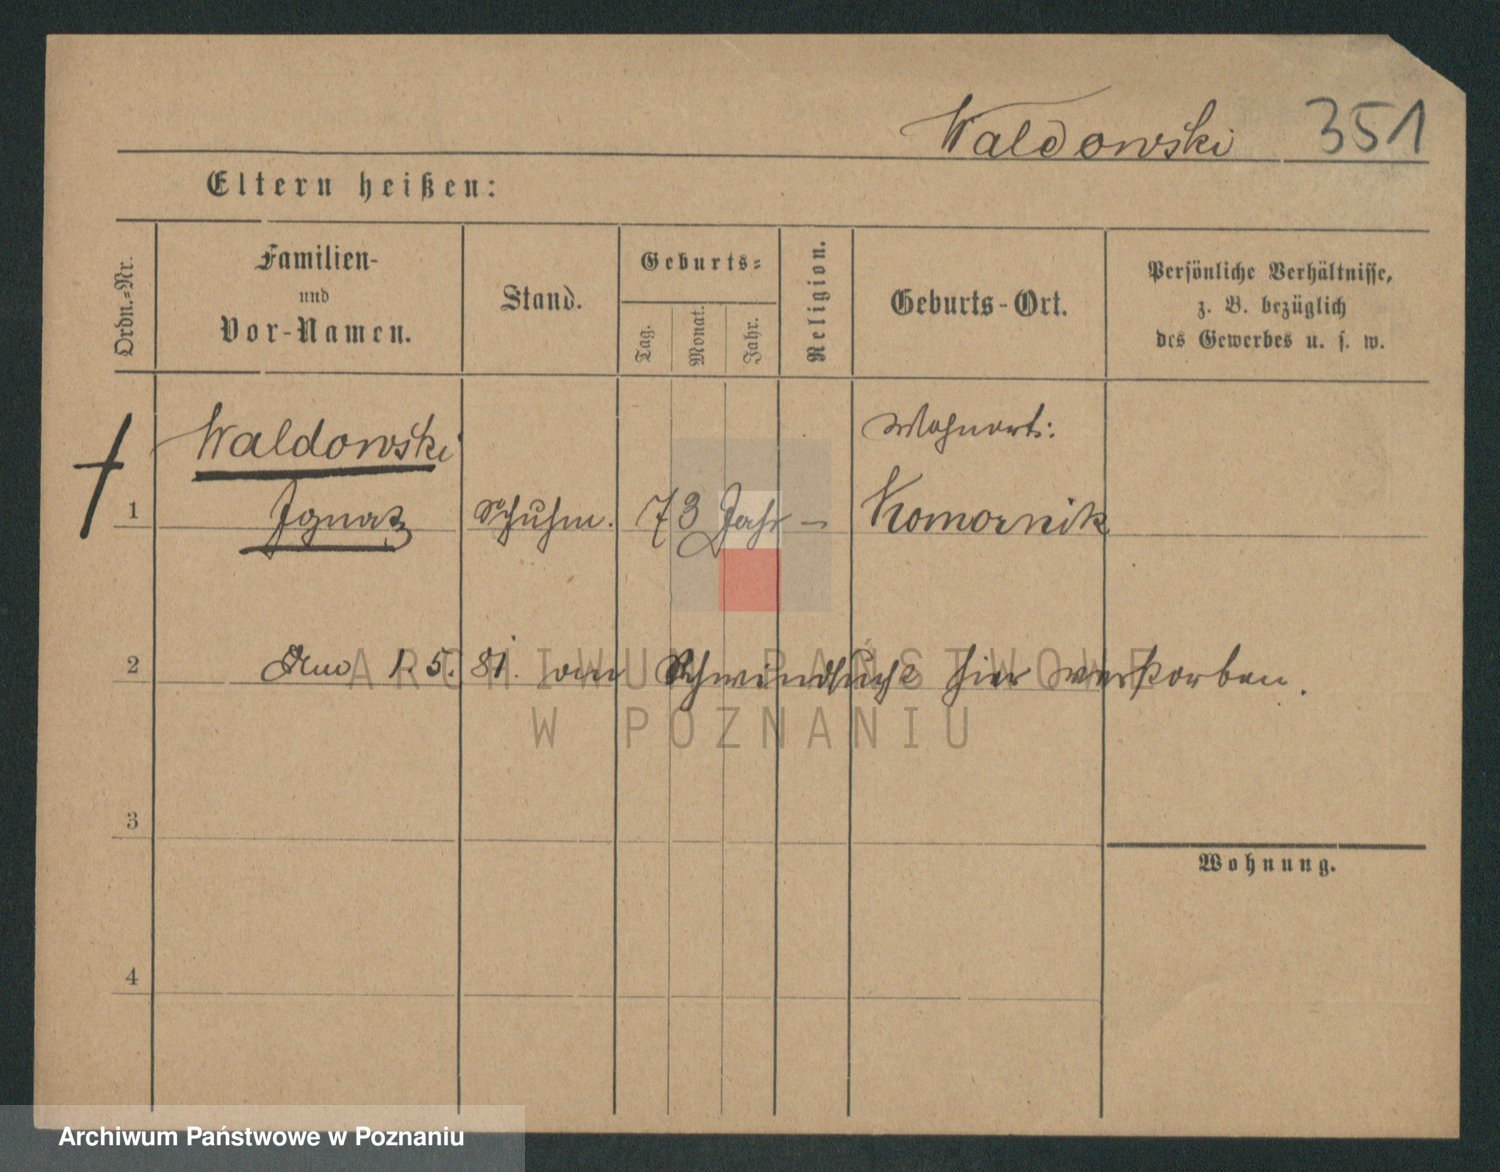 Waldowski 351
Eltern heißen:
Ordn.-Nr.
Familien-
und
Vor-Namen.
Stand.
Geburts-
Tag.
Monat.
Jahr.
Religion.
Geburts-Ort.
Persönliche Verhältnisse,
z. B. bezüglich
des Gewerbes u. s. w.
Waldowski
Wohnort:
1 Ignatz Schuhm. 73 Jahr – Komornik
2 Am 1. 5. 81. an Schwindsucht hier verstorben.
ARCHIWUM PAŃSTWOWE
W POZNANIU
3
Wohnung.
4
Archiwum Państwowe w Poznaniu